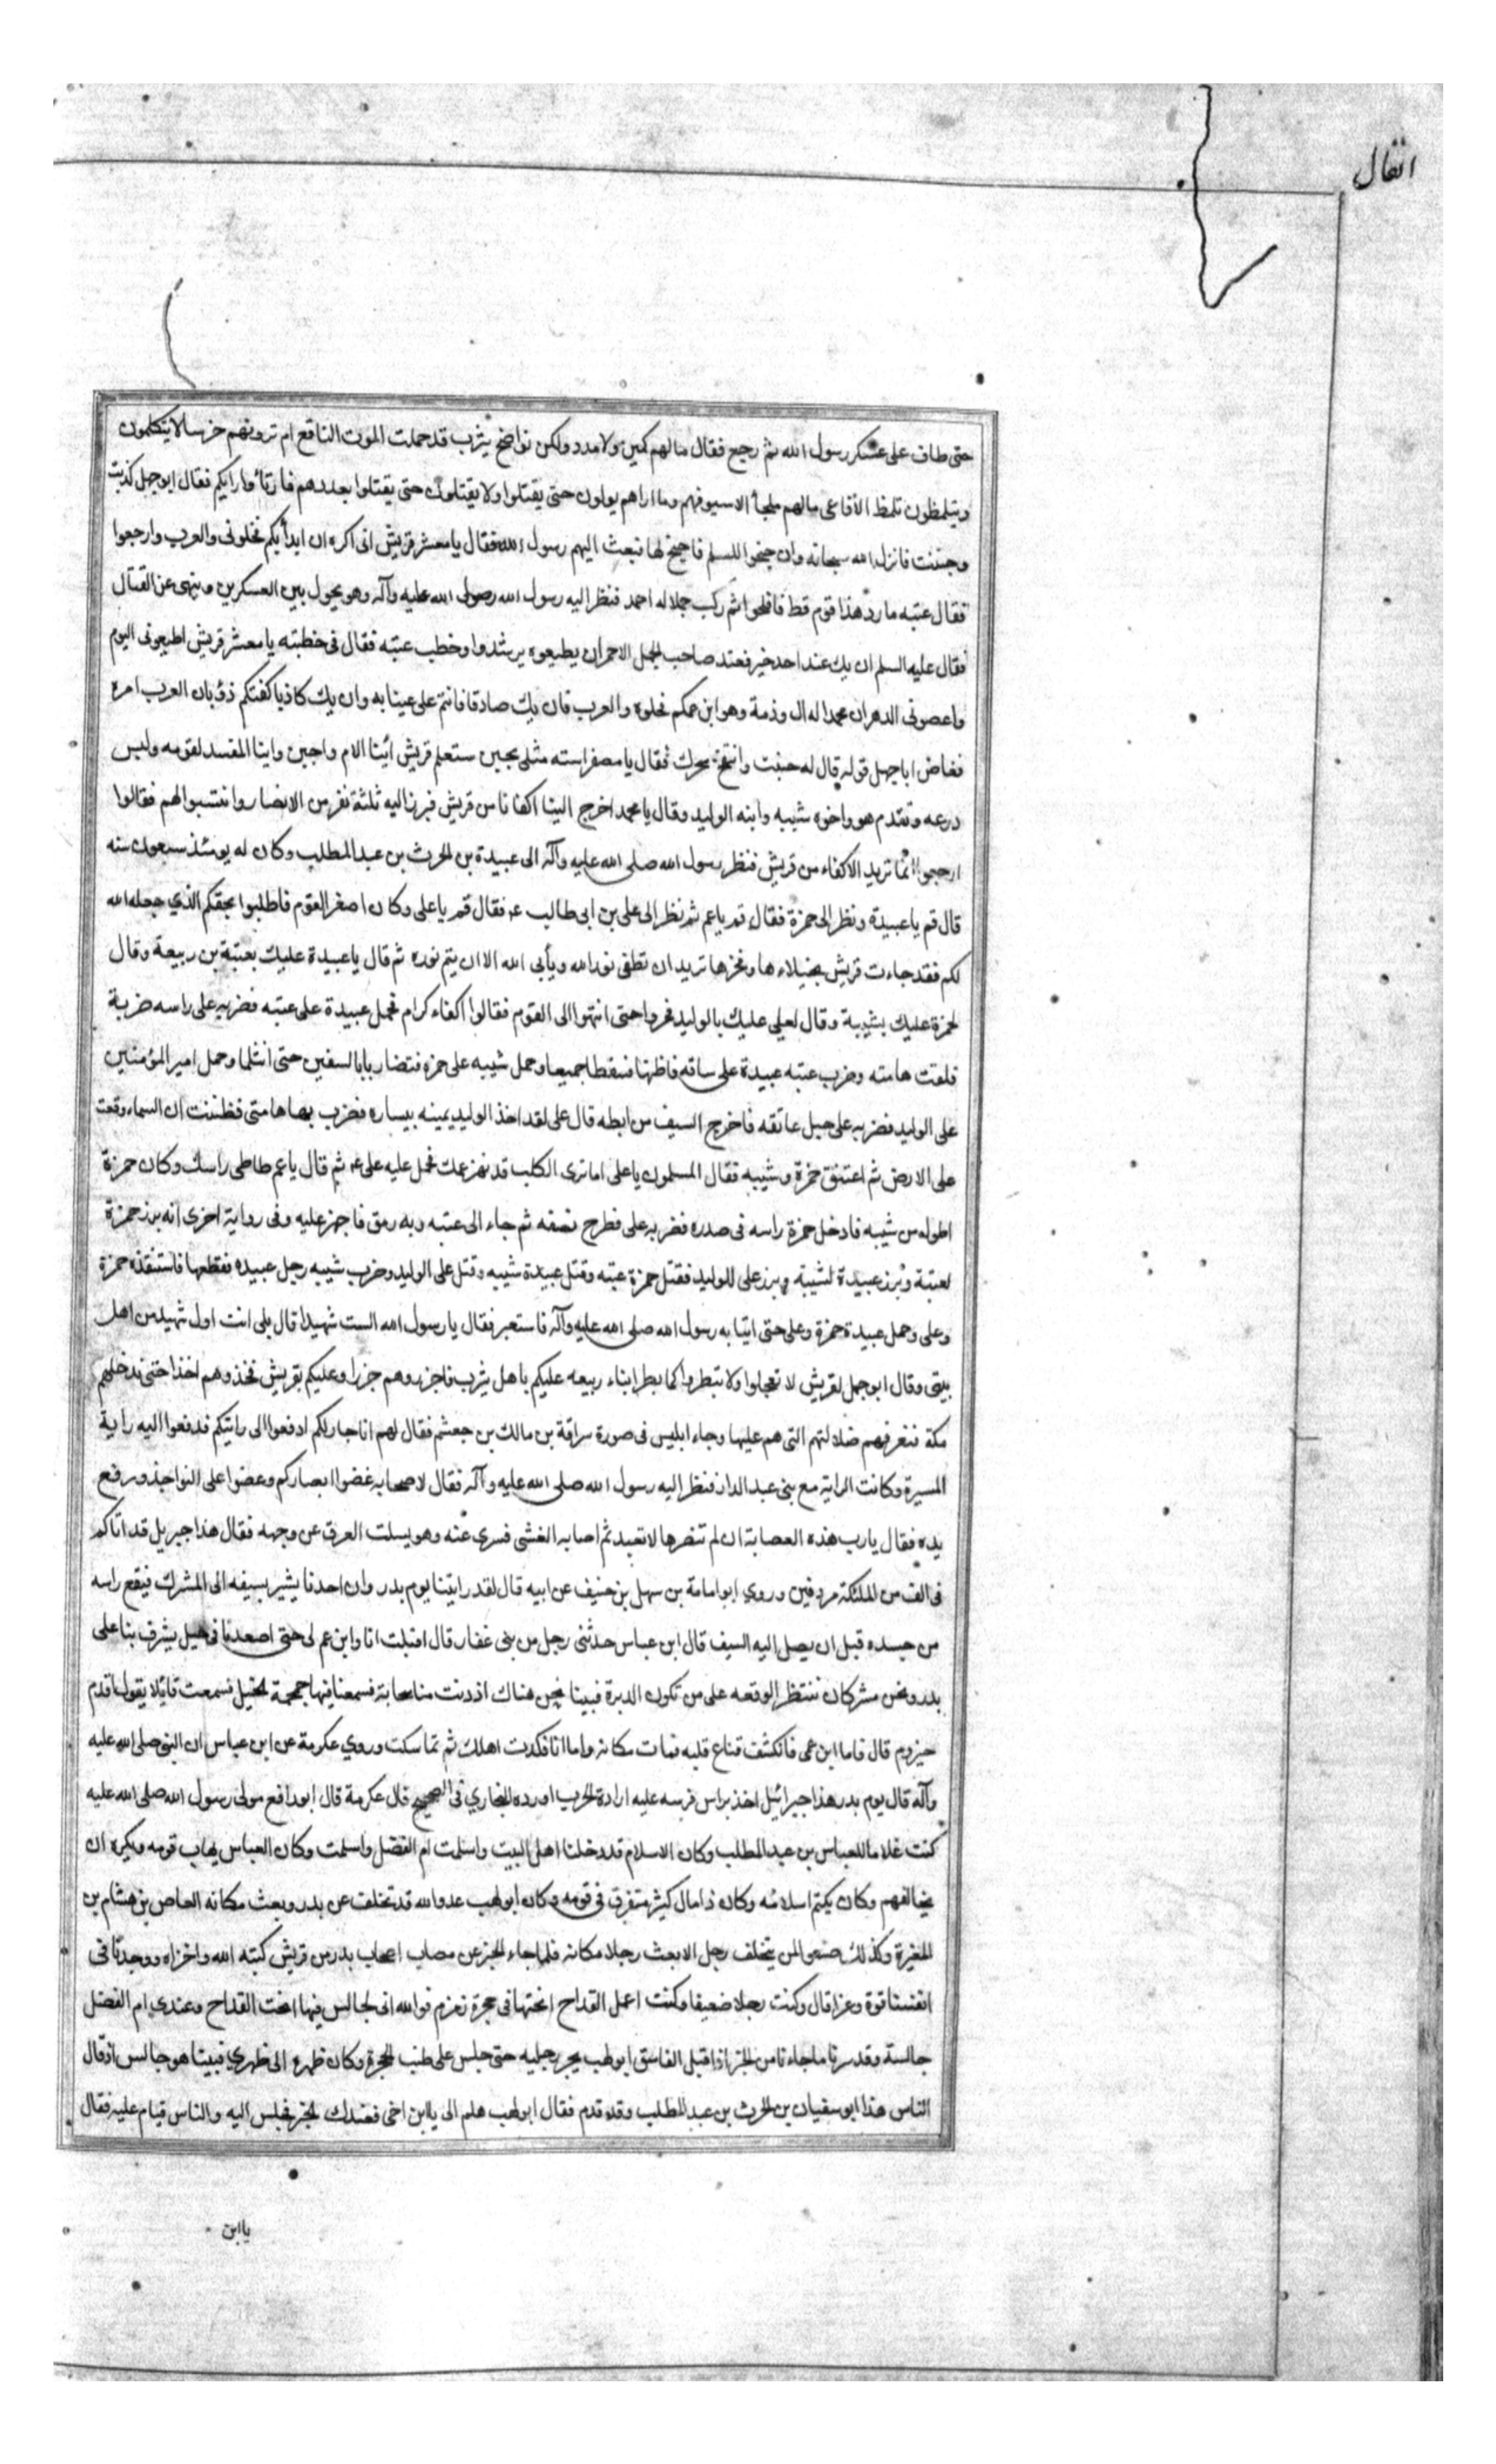 انفال
حتى طاف على عسكر رسول الله ثم رجع فقال ما لهم كمين ولا مدد ولكن نواضح يثرب قد حملت الموت الناقع ام ترونهم خرسا لا يتكلمون
ويتلمظون تلمظ الأفاعى مالهم ملجأ الا سيوفهم وما اراهم يولون حتى يقتلوا ولا يقتلون حتى يقتلوا بعددهم فارتأوا رايكم فقال ابو جهل كذبت
وجبنت فانزل الله سبحانه وان جنحوا للسلم فاجنح لها فبعث اليهم رسول الله فقال يا معشر قريش انى اكره ان ابدأ بكم فخلونى والعرب وارجعوا
فقال عتبه ما رد هذا قوم قط فافلحوا ثم ركب جملا له احمر فنظر اليه رسول الله صلى الله عليه وآله وهو يحول بين العسكرين وينهى عن القتال
فقال عليه السلم ان يك عند احد خير فعند صاحب الجمل الاحمر ان يطيعوه يرشدوا وخطب عتبه فقال فى خطبته يا معشر قريش اطيعونى اليوم
واعصونى الدهر ان محمدا له ال وذمة وهو ابن عمكم فخلوه والعرب فان يك صادقا فانتم على عينا به وان يك كاذبا كفتكم ذؤبان العرب امره
فغاض ابا جهل قوله قال له جبنت وانتفخ سحرك فقال يا مصفر استه مثلى يجبن ستعلم قريش اينا الام واجبن واينا المفسد لقومه ولبس
درعه وتقدم هو واخوه شيبه وابنه الوليد وقال يا محمد اخرج الينا اكفانا من قريش فبرز اليه ثلثة نفر من الانصار وانتسبوا لهم فقالوا
ارجعوا انما نريد الاكفاء من قريش فنظر رسول الله صلى الله عليه وآله الى عبيدة بن الحرث بن عبد المطلب وكان له يومئذ سبعون سنه
قال قم يا عبيدة ونظر الى حمزة فقال قم يا عم ثم نظر الى على بن ابى طالب ع فقال قم يا على وكان اصغر القوم فاطلبوا بحقكم الذي جعله الله
لكم فقد جاءت قريش بخيلاءها وفخرها تريد ان تطفى نور الله ويأبى الله الا ان يتم نوره ثم قال يا عبيدة عليك بعتبة بن ربيعة وقال
لحمزة عليك بشيبة وقال لعلى عليك بالوليد فمروا حتى انتهوا الى القوم فقالوا اكفاء كرام فحمل عبيدة على عتبه فضربه على راسه ضربة
فلقت هامته وضرب عتبه عبيدة على ساقه فاظنها فسقطا جميعا وحمل شيبه على حمزه فتضاربا بالسيفين حتى انثلما وحمل امير المؤمنين
على الوليد فضربه على حبل عاتقه فاخرج السيف من ابطه قال على لقد اخذ الوليد يمينه بيساره فضرب بها هامتى فظننت ان السماء وقعت
على الارض ثم اعتنق حمزة وشيبه فقال المسلمون يا على اما ترى الكلب قد نهز عمك فحمل عليه على ع ثم قال يا عم طاطى راسك وكان حمزة
اطول من شيبه فادخل حمزة راسه فى صدره فضربه على فطرح نصفه ثم جاء الى عتبه وبه رمق فاجهز عليه وفى رواية اخرى انه برز حمزة
لعتبة وبرز عبيدة لشيبة وبرز على للوليد فقتل حمزة عتبه وقتل عبيدة شيبه وقتل على الوليد وضرب شيبه رجل عبيده فقطعها فاستنقذه حمزة
وعلى وحمل عبيدة حمزة وعلى حتى اتيا به رسول الله صلى الله عليه وآله فاستعبر فقال يا رسول الله الست شهيدا قال بلى انت اول شهيد من اهل
بيتى وقال ابو جهل لقريش لا تعجلوا ولا تبطروا كما بطر ابناء ربيعه عليكم باهل يثرب فاجزروهم جزرا وعليكم بقريش فخذوهم اخذا حتى ندخلهم
مكة فنعرفهم ضلالتهم التى هم عليها وجاء ابليس فى صورة سراقة بن مالك بن جعشم فقال لهم انا جار لكم ادفعوا الى رايتكم فدفعوا اليه راية
الميسرة وكانت الراية مع بنى عبد الدار فنظر اليه رسول الله صلى الله عليه وآله فقال لاصحابه غضوا ابصاركم وعضوا على النواجذ ورفع
يده فقال يا رب هذه العصابة ان لم تنصرها لا تعبد ثم اصابه الغشى فسرى عنه وهو يسلت العرق عن وجهه فقال هذا جبريل قد اتاكم
فى الف من الملئكة مردفين وروي ابو امامة بن سهل بن حنيف عن ابيه قال لقد رايتنا يوم بدر وان احدنا يشير بسيفه الى المشرك فيقع راسه
من جسده قبل ان يصل اليه السيف قال ابن عباس حدثنى رجل من بنى غفار قال اقبلت انا وابن عم لى حتى اصعدنا فى جبل يشرف بنا على
بدر ونحن مشركان ننتظر الوقعه على من تكون الدبرة فبينا نحن هناك اذ دنت منا سحابة فسمعنا فيها حمحمة الخيل فسمعت قائلا يقول اقدم
حيزوم قال فاما ابن عمى فانكشف قناع قلبه فمات مكانه واما انا فكدت اهلك ثم تماسكت وروي عكرمة عن ابن عباس ان النبى صلى الله عليه
وآله قال يوم بدر هذا جبرائيل اخذ براس فرسه عليه اداة الحرب اورده البخاري فى الصحيح قال عكرمة قال ابو رافع مولى رسول الله صلى الله عليه
كنت غلاما للعباس بن عبد المطلب وكان الاسلام قد دخلنا اهل البيت واسلمت ام الفضل واسلمت وكان العباس يهاب قومه ويكره ان
يخالفهم وكان يكتم اسلامه وكان ذا مال كثير متفرق فى قومه وكان ابو لهب عدو الله قد تخلف عن بدر وبعث مكانه العاص بن هشام بن
المغيرة وكذلك صنعوا لم يتخلف رجل الا بعث رجلا مكانه فلما جاء الخبر عن مصاب اصحاب بدر من قريش كبته الله واخزاه ووجدنا فى
انفسنا قوة وعزا قال وكنت رجلا ضعيفا وكنت اعمل القداح انحتها فى حجرة زمزم فوالله انى لجالس فيها انحت القداح وعندي ام الفضل
جالسة وقد سرنا ما جاءنا من الخبر اذ اقبل الفاسق ابو لهب يجر رجليه حتى جلس على طنب الحجرة وكان ظهره الى ظهري فبينا هو جالس اذ قال
الناس هذا ابو سفيان بن الحرث بن عبد المطلب وقد قدم فقال ابو لهب هلم الى يا ابن اخى فعندك الخبر فجلس اليه والناس قيام عليه فقال
يا ابن